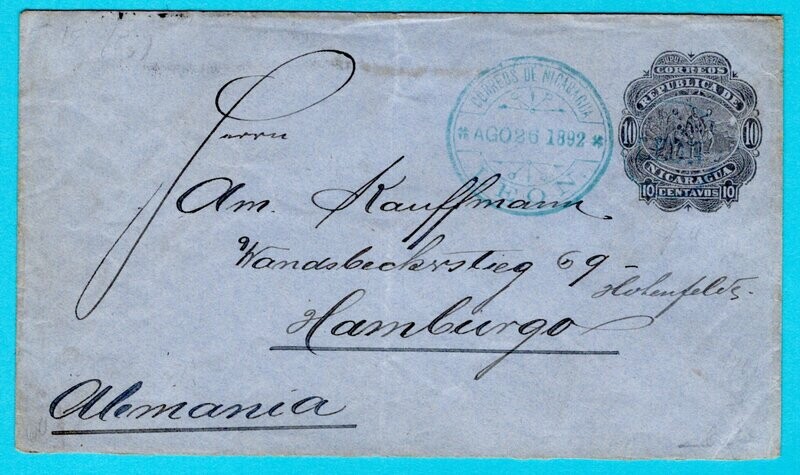 CORREOS DE NICARAGUA
* AGO 26 1892 *
LEON
CORREOS
REPUBLICA DE
10 10
NICARAGUA
10 CENTAVOS 10
Herrn
Am. Kauffmann
Wandsbeckerstieg 69-
Hohenfelde.
Hamburgo
Alemania